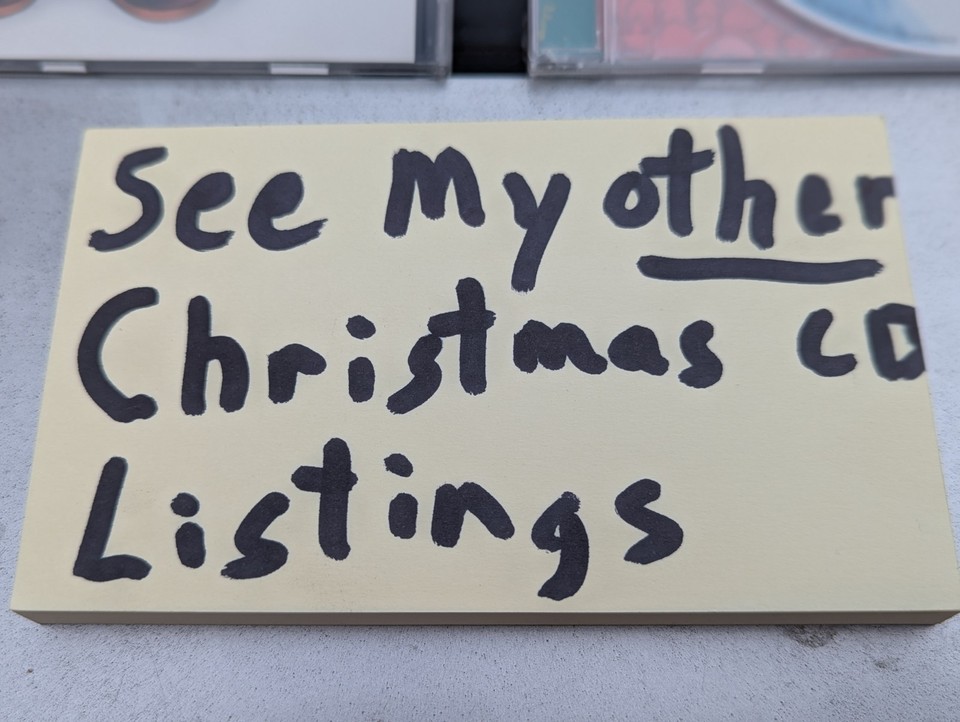 See My other
Christmas CD
Listings